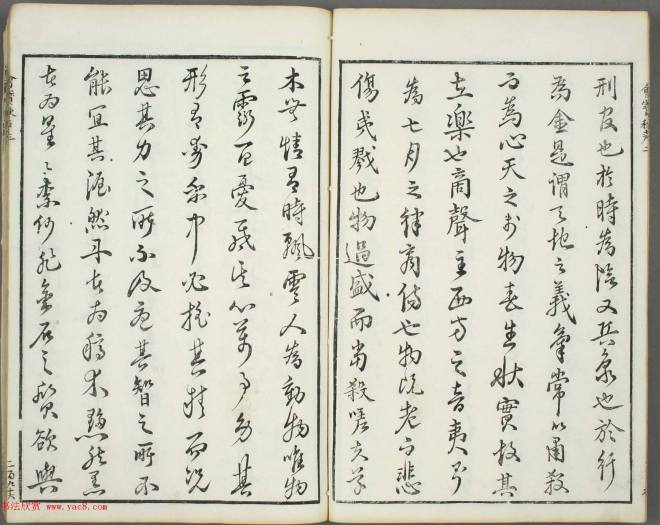 刑官也於時為陰又兵象也於行
為金是謂天地之義氣常以肅殺
而為心天之於物春生秋實故其
在樂也商聲主西方之音夷則
為七月之律商傷也物既老而悲
傷夷戮也物過盛而當殺嗟夫草
木無情有時飄零人為動物唯物
之靈百憂感其心萬事勞其
形有動於中必搖其精而況
思其力之所不及憂其智之所不
能宜其渥然丹者為槁木黟然黑
者為星星奈何非金石之質欲與
书法欣赏 www.yac8.com